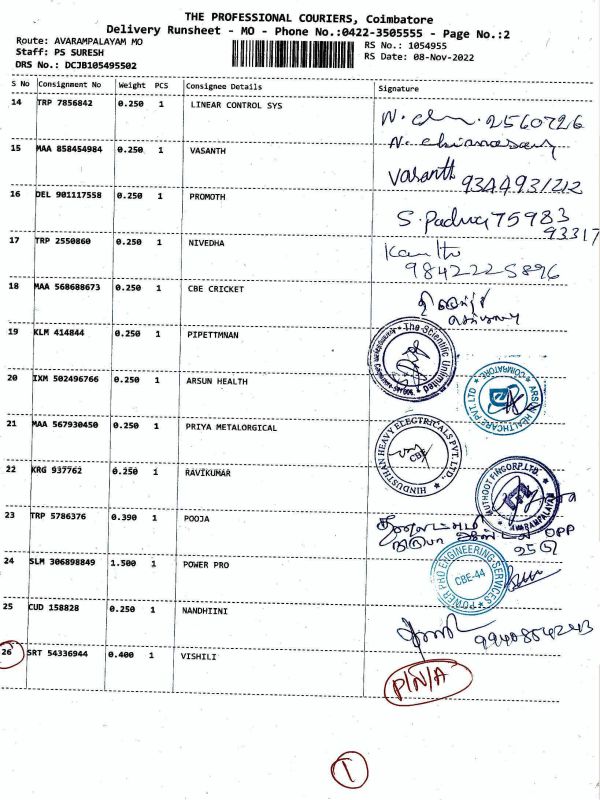 THE PROFESSIONAL COURIERS, Coimbatore
Delivery Runsheet - MO - Phone No.:0422-3505555 - Page No.:2
Route: AVARAMPALAYAM MO
Staff: PS SURESH
DRS No.: DCJB105495502
RS No.: 1054955
RS Date: 08-Nov-2022
S No Consignment No Weight PCS Consignee Details Signature
14 TRP 7856842 0.250 1 LINEAR CONTROL SYS 2560726
15 MAA 858454984 0.250 1 VASANTH Vasanth 9344931212
16 DEL 901117558 0.250 1 PROMOTH 75983
93317
17 TRP 2550860 0.250 1 NIVEDHA
9842225896
18 MAA 568688673 0.250 1 CBE CRICKET
19 KLM 414844 0.250 1 PIPETTMNAN The Scientific Unlimited
20 IXM 502496766 0.250 1 ARSUN HEALTH ARSUN HEALTHCARE PVT. LTD COIMBATORE
21 MAA 567930450 0.250 1 PRIYA METALORGICAL HINDUSTHAN HEAVY ELECTRICALS PVT. LTD., CBE
22 KRG 937762 0.250 1 RAVIKUMAR MUTHOOT FINCORP LTD. AVARAMPALAYAM
23 TRP 5786376 0.390 1 POOJA OPP
24 SLM 306898849 1.500 1 POWER PRO POWER PRO ENGINEERING SERVICES CBE-44
25 CUD 158828 0.250 1 NANDHIINI
26 SRT 54336944 0.400 1 VISHILI P/N/A
1